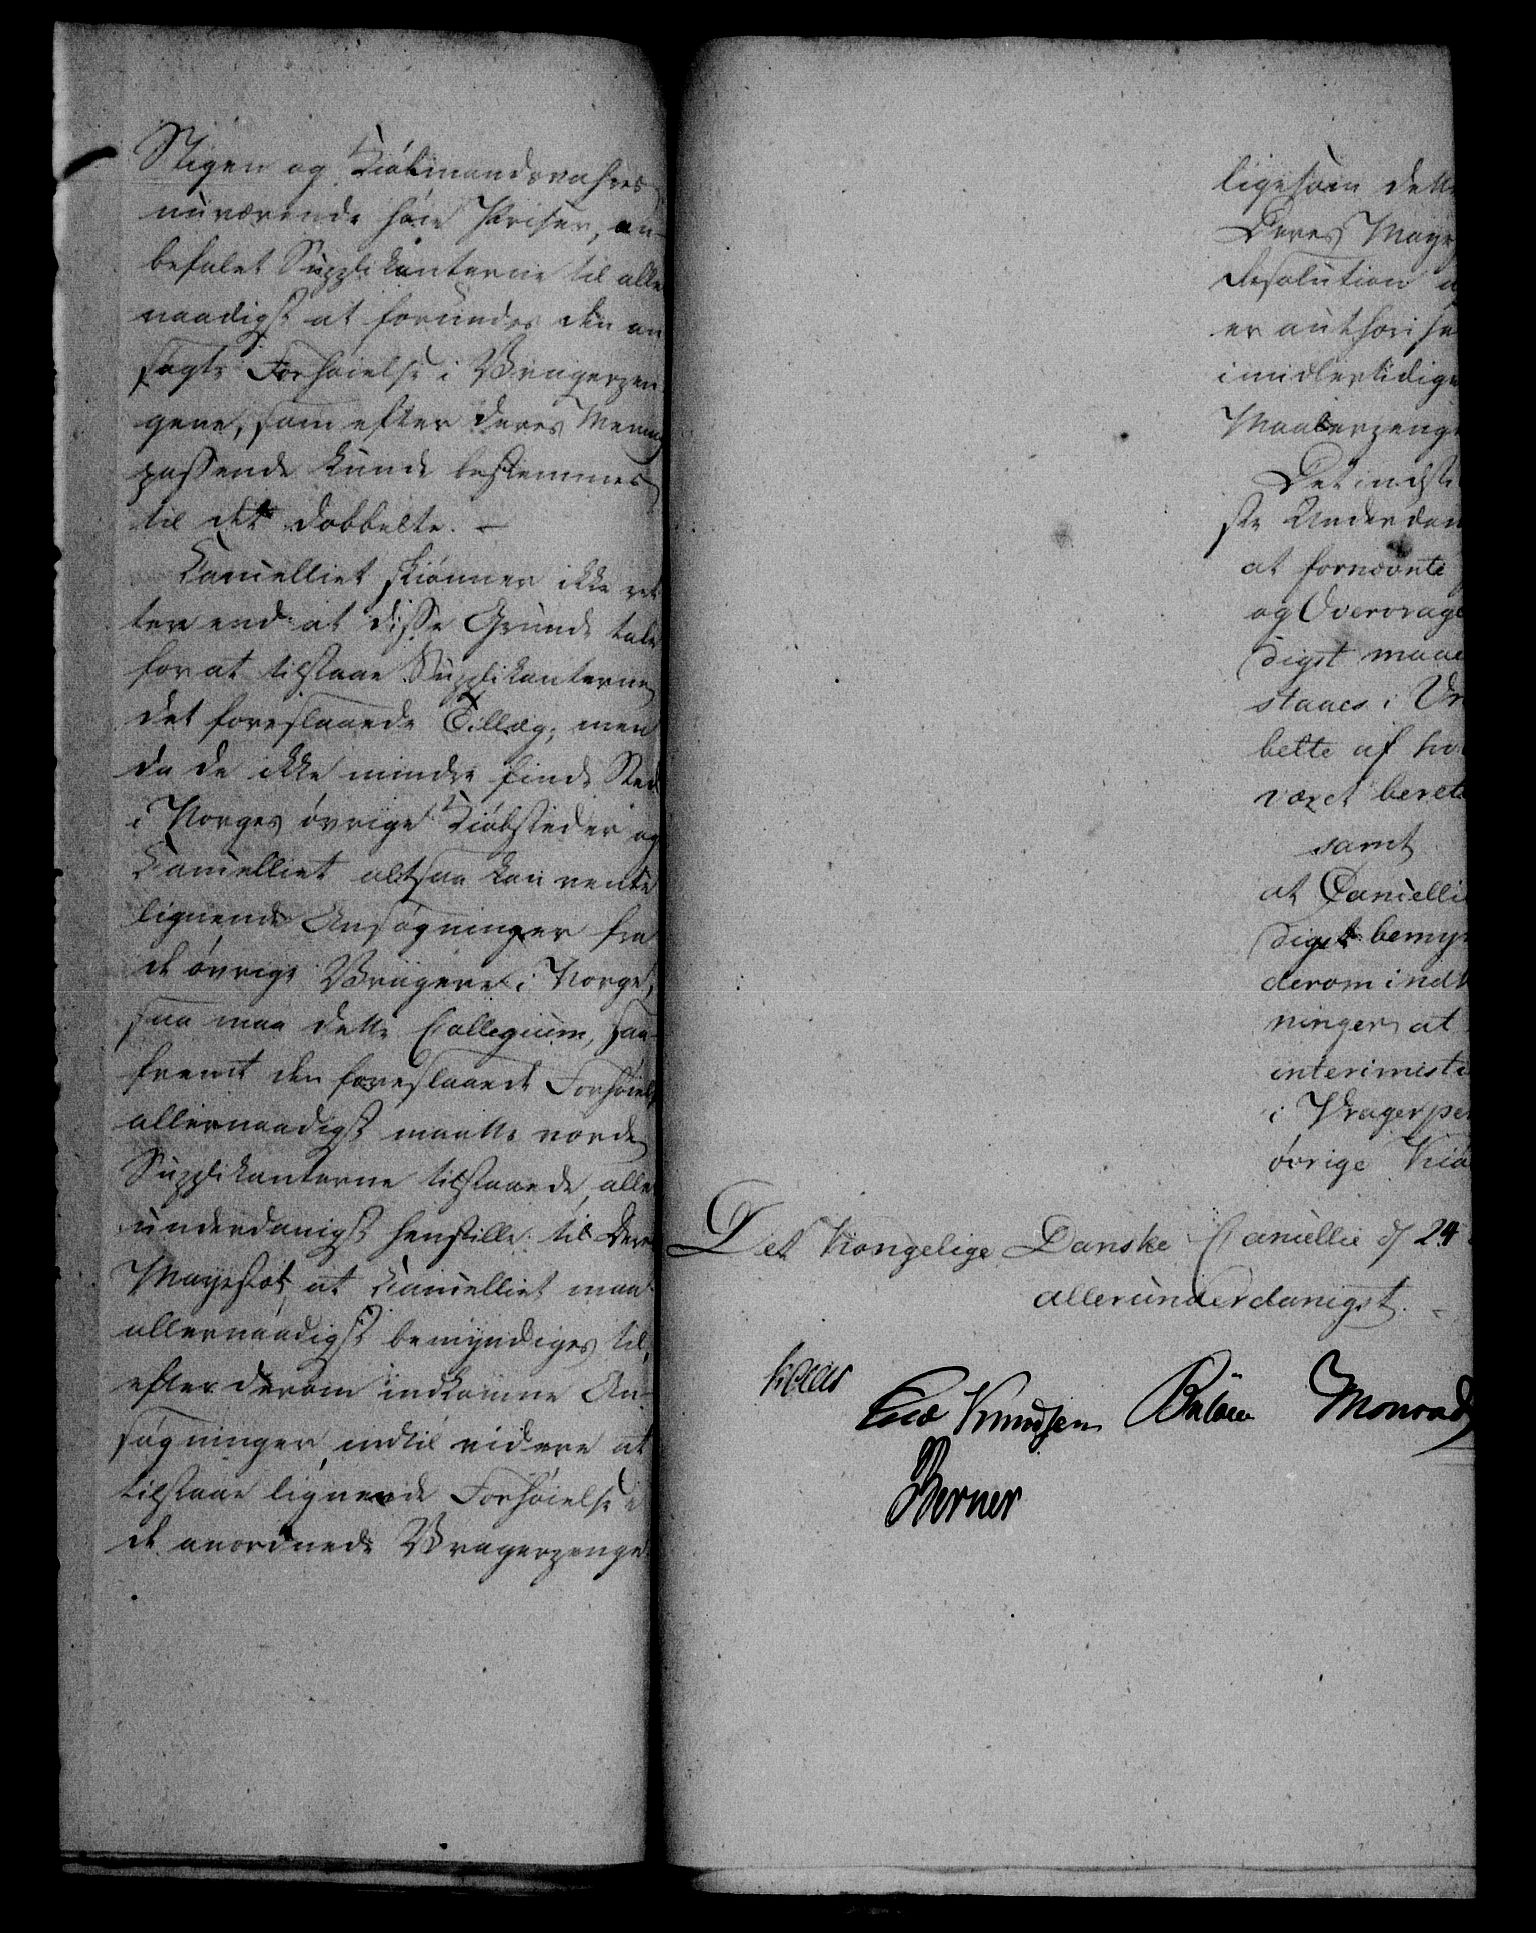 Stigen og Kiöbmandsvahres
nuværende höie Priser, an-
befalet Supplikanterne til aller
naadigst at forundes den an
søgte Forhøielse i Vragerpen
gene, som efter deres Mening
passende kunde bestemmes
til det dobbelte. –
Cancelliet skiönner ikke ret
tere end at disse Grunde tale
for at tilstaae Supplikanterne
det foreslaaede Tillæg; men
da de ikke mindre finde Sted
i Norges øvrige Kiøbstæder og
Cancelliet altsaa kan vente
lignende Ansøgninger fra
de øvrige Vragere i Norge,
saa maa dette Collegium, saa-
fremt den foreslaaede Forhøielse
allernaadigst maatte vorde
Supplikanterne tilstaaede, aller
underdanigst henstille til Deres
Majestæt, at Cancelliet maa
allernaadigst bemyndiges til,
efter derom indkomne An-
søgninger, indtil videre at
tilstaae lignende Forhøielse i
de anordnede Vragerpenge
ligesom dette
Deres Maye
Resolution
er authorise
imidlertidige
Maalerpenge
Det indsti
ste Underdan
at fornævnte
og Overvrage
digst maae
staaes i Vr
belte af hv
været beret
samt
at Cancelli
digst bemyn
derom indk
ninger at
interimisti
i Vragerpen
øvrige Kiø
Det Kongelige Danske Cancellie d 24
allerunderdanigst.
Kaas
Knudsen Bülow Monrad
Berner